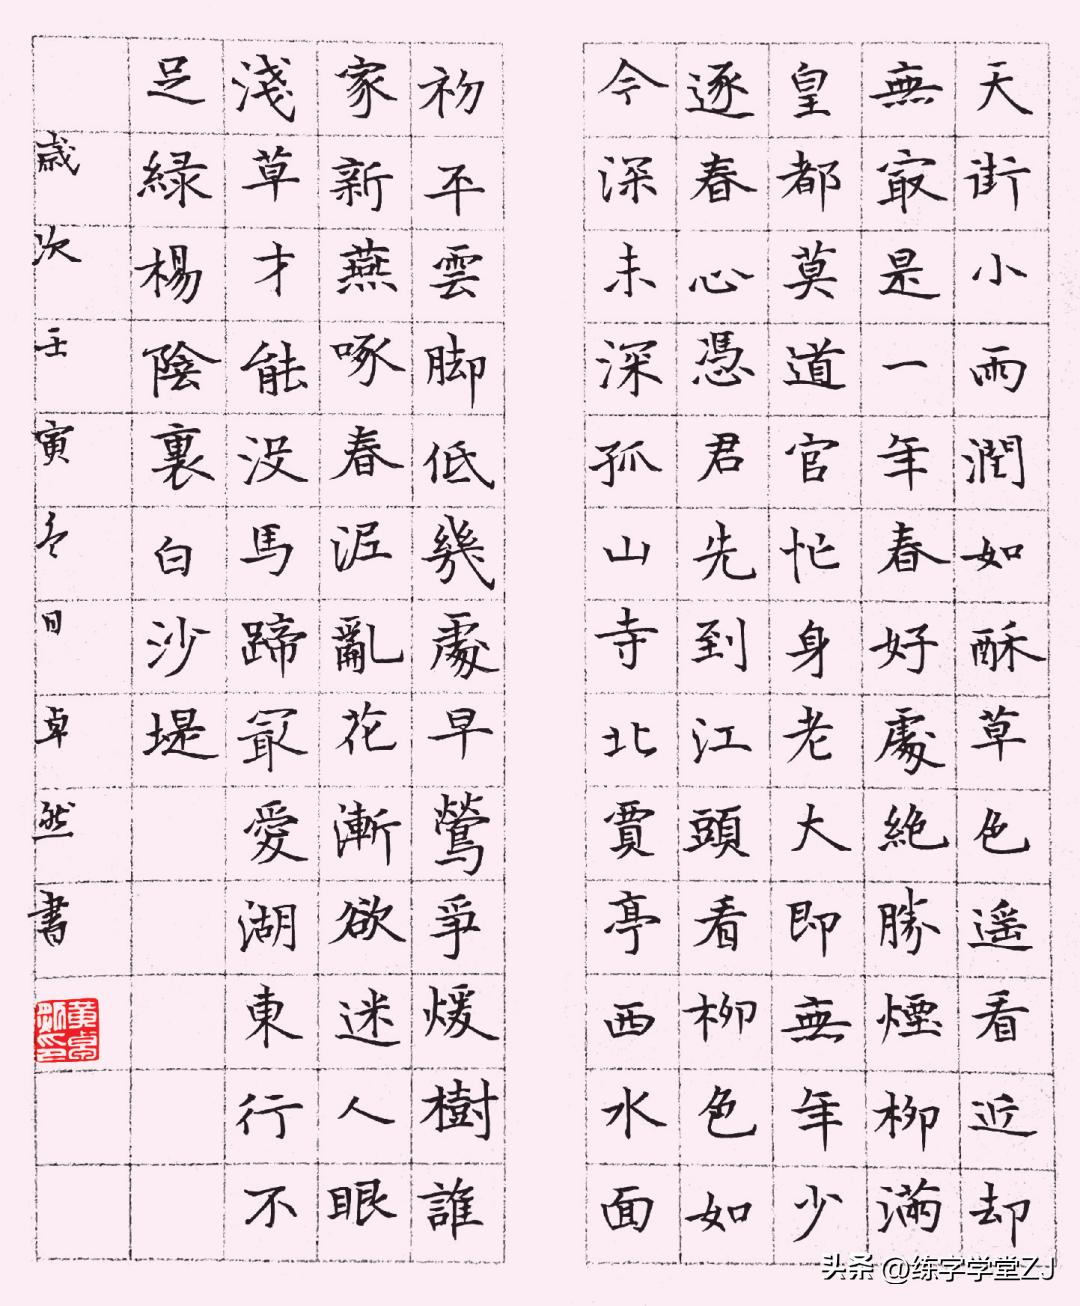 天街小雨潤如酥草色遥看近却
無㝡是一年春好處絶勝煙柳滿
皇都莫道官忙身老大即無年少
逐春心憑君先到江頭看柳色如
今深未深孤山寺北賈亭西水面
初平雲脚低幾處早鶯爭煖樹誰
家新燕啄春泥亂花漸欲迷人眼
淺草才能没馬蹄㝡愛湖東行不
足緑楊陰裏白沙堤
歲次壬寅冬日卓然書
黄卓然印
头条 @练字学堂ZJ